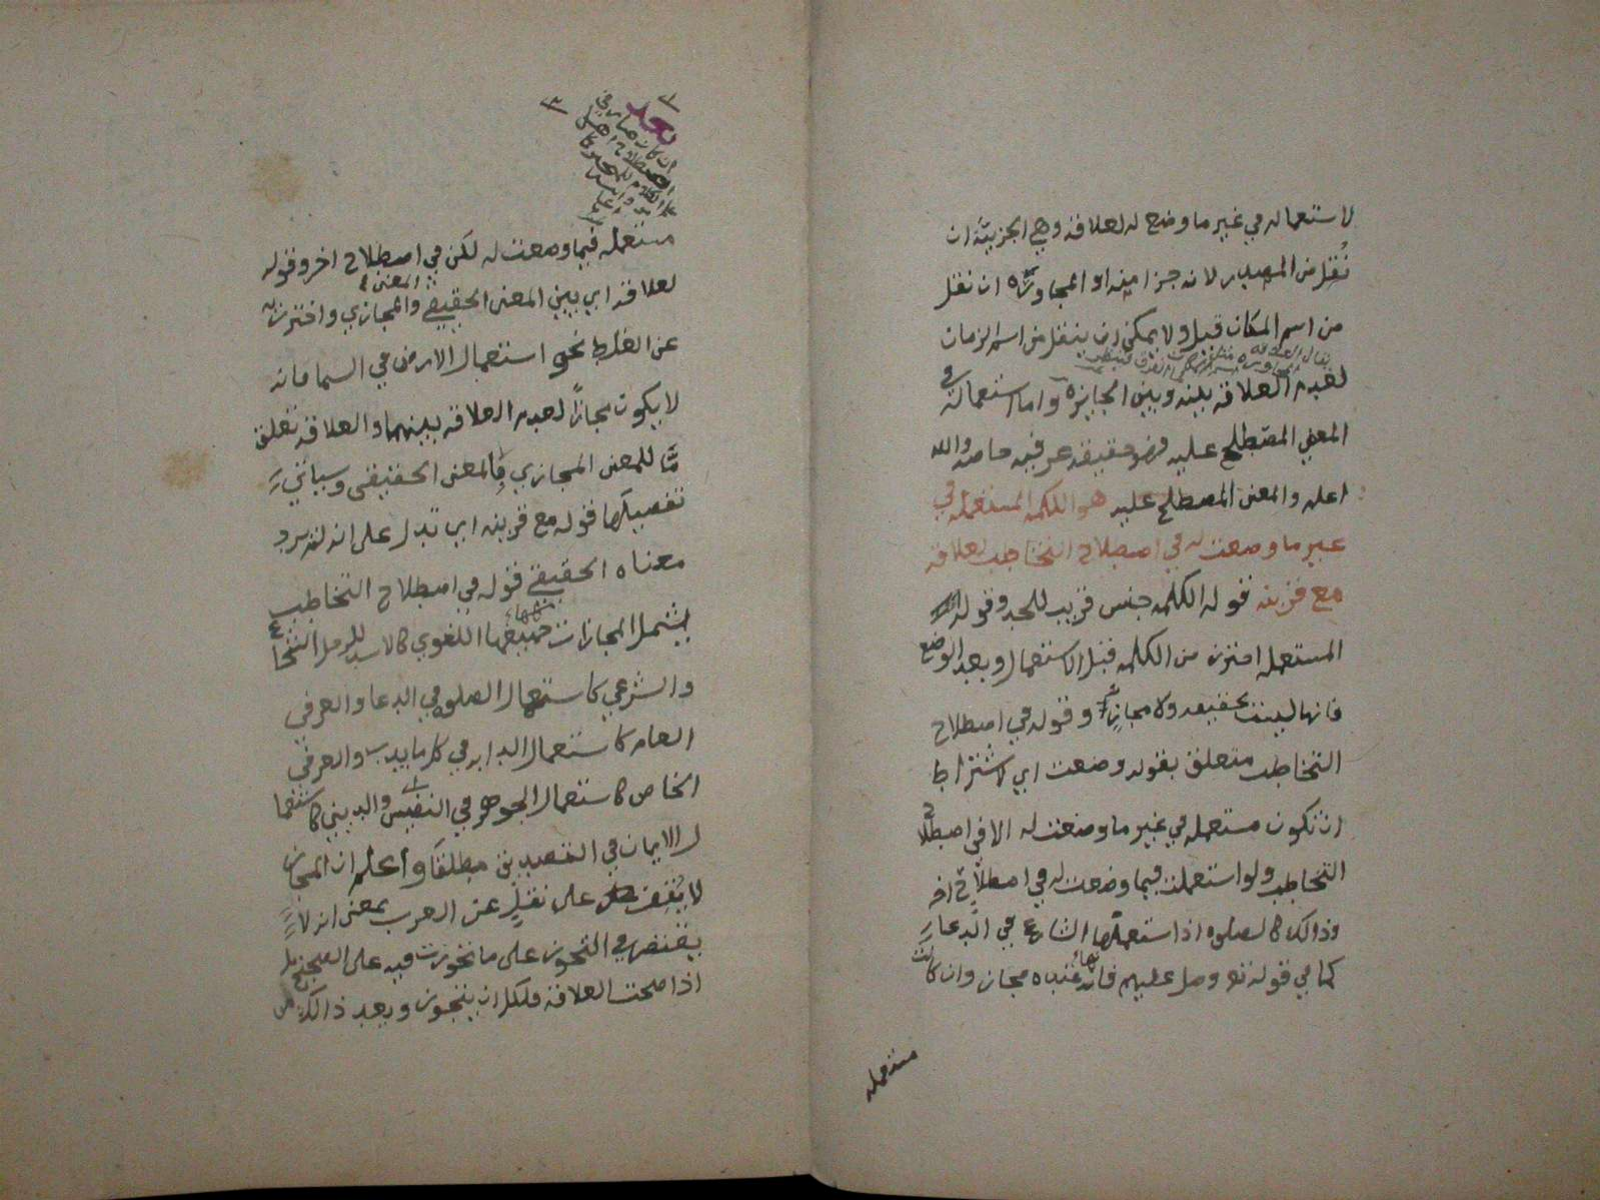 لاستعماله في غير ما وضع له لعلاقة وهي الجزيئة ان
نُقل من المصدر لانه جزا منه او المجاورة ان نقل
من اسم المكان قيل ولا يمكن ان ينقل من اسم الزمان
لعدم العلاقة بينه وبين الجايزة واما استعماله في
المعني المصطلح عليه فهو حقيقة عرفيه خاصه والله
اعلم والمعنى المصطلح عليه هو الكلمة المستعملة في
غير ما وضعت له في اصطلاح التخاطب لعلاقة
مع قرينه قوله الكلمه جنس قريب للحد وقوله
المستعمله احترز من الكلمه قبل الاستعمال وبعد الوضع
فانها ليست بحقيقه ولا مجاز وقوله في اصطلاح
التخاطب متعلق بقوله وضعت اي لاشتراط
ان تكون مستعمله في غير ما وضعت له الا في اصطلاح
التخاطب ولو استعملت فيما وضعت له في اصطلاح اخر
وذالك كالصلوة اذا استعملها الشارع في الدعاء
كما في قوله تع وصل عليهم فانها عنده مجاز وان كانت
مستعمله
بعد
ان كان صار في
مستعمله فيما وضعت له لكن في اصطلاح اخر وقوله
لعلاقة اي بين المعنى الحقيقي والمعنى المجازي واحترز به
عن الغلط نحو استعمال الارض في السما فانه
لا يكون مجازاً لعدم العلاقة بينهما والعلاقة تعلق
مّا للمعنى المجازي بالمعنى الحقيقى وسياتي
تفصيلها قوله مع قرينه اي تدل على انه لم يرد
معناه الحقيقي قوله في اصطلاح التخاطب
ليشمل المجازات جميعها اللغوي كالاسد للرجل الشجاع
والشرعي كاستعمال الصلوة في الدعا والعرفي
العام كاستعمال الدابه في كل ما يدب والعرفي
الخاص كاستعمال الجوهر في النفيس والديني كاستعما
ل الايمان في التصديق مطلقا واعلم ان المجاز
لا يقف على نقل عن العرب بمعنى انه لا
يقتصر في التجوز على ما تجوزت فيه على الصحيح بل
اذا صحت العلاقة فلكل ان يتجوز وبعد ذالك